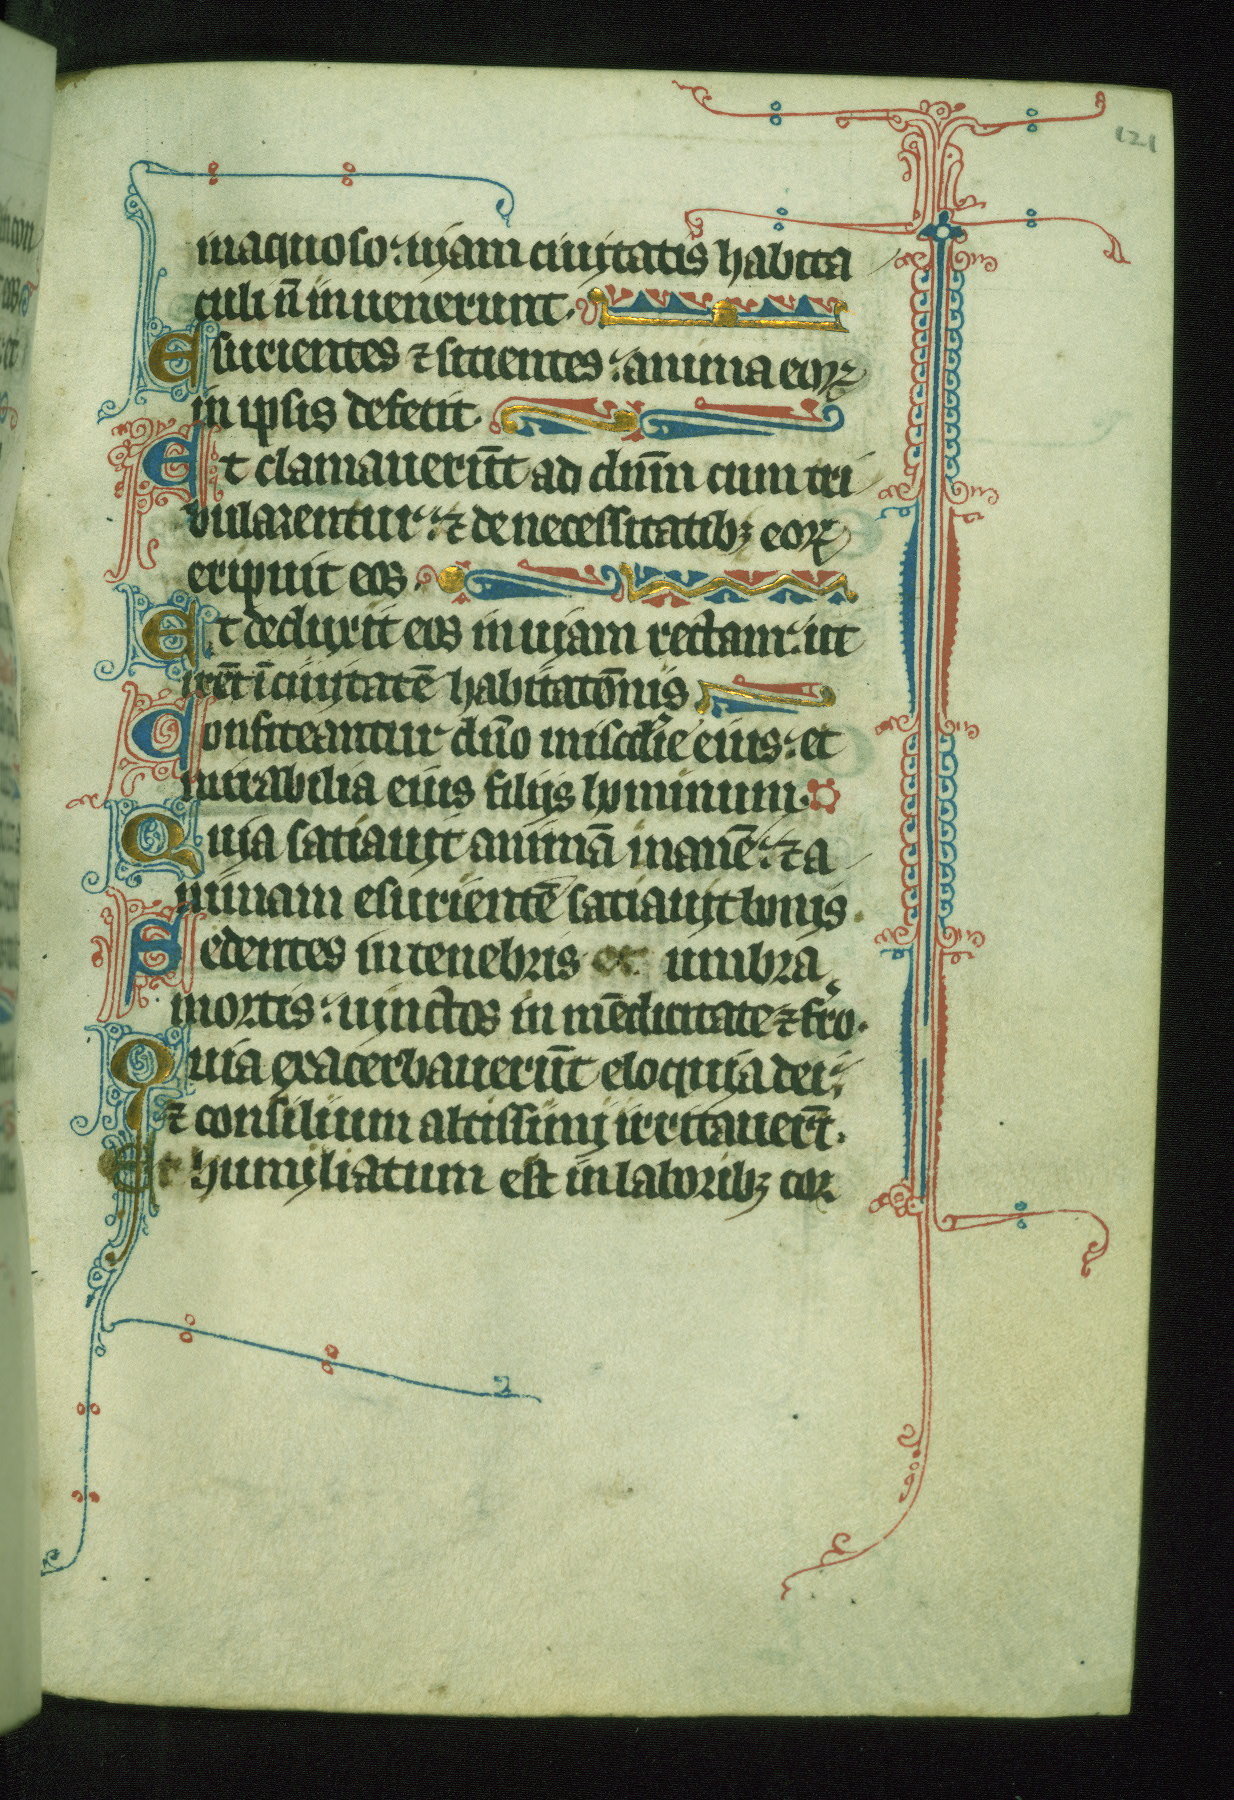 121
inaquoso : uiam ciuitatis habita
culi n̄ inuenerunt .
Esurientes ⁊ sitientes : anima eoꝝ
in ipsis defecit .
Et clamauerūt ad dn̄m cum tri
bularentur : ⁊ de necessitatibꝫ eoꝝ
eripuit eos .
Et deduxit eos in uiam rectam : ut
irēt ī ciuitatē habitatōnis
Confiteantur dn̄o misc̄die eius : et
mirabilia eius filijs hominum .
Quia satiauit animā inanē : ⁊ a
nimam esurientē satiauit bonis .
Sedentes in tenebris et umbra
mortis : uinctos in mēdicitate ⁊ fr̄o .
Quia exacerbauerūt eloquia dei :
⁊ consilium altissimi irritauer̄t .
Et humiliatum est in laboribꝫ cor